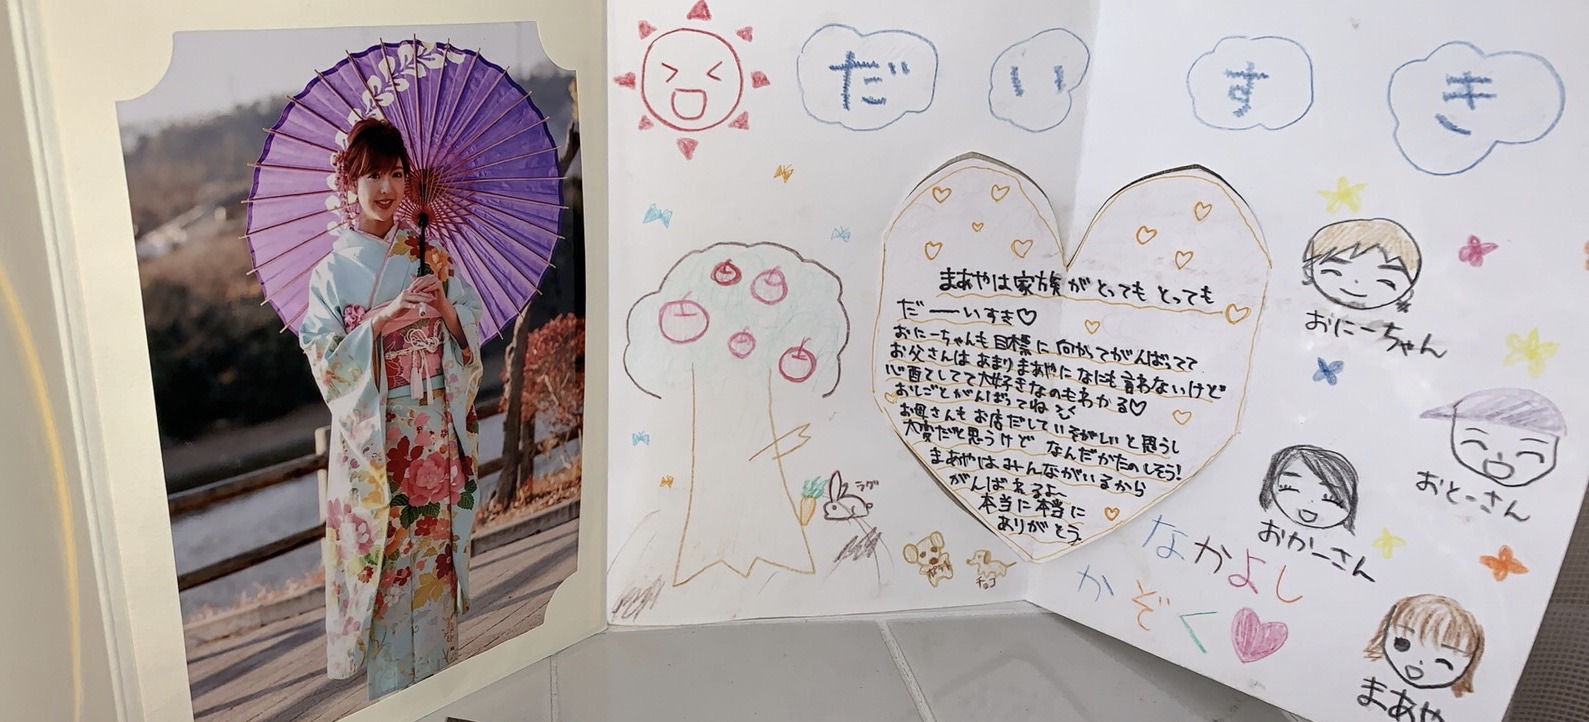 だいすき
まあやは家族がとってもとっても
だーーいすき♡
おにーちゃんも目標に向かってがんばってて
お父さんはあまりまあやになにも言わないけど
心配てしてて大好きなのもわかる♡
おしごとがんばってね
お母さんもお店だしていそがしいと思うし
大変だと思うけど なんだかたのしそう!
まあやはみんながいるから
がんばれるよ〜
本当に本当に
ありがとう。
おにーちゃん
おとーさん
おかーさん
まあや
なかよし
かぞく
ラグ
チョコ